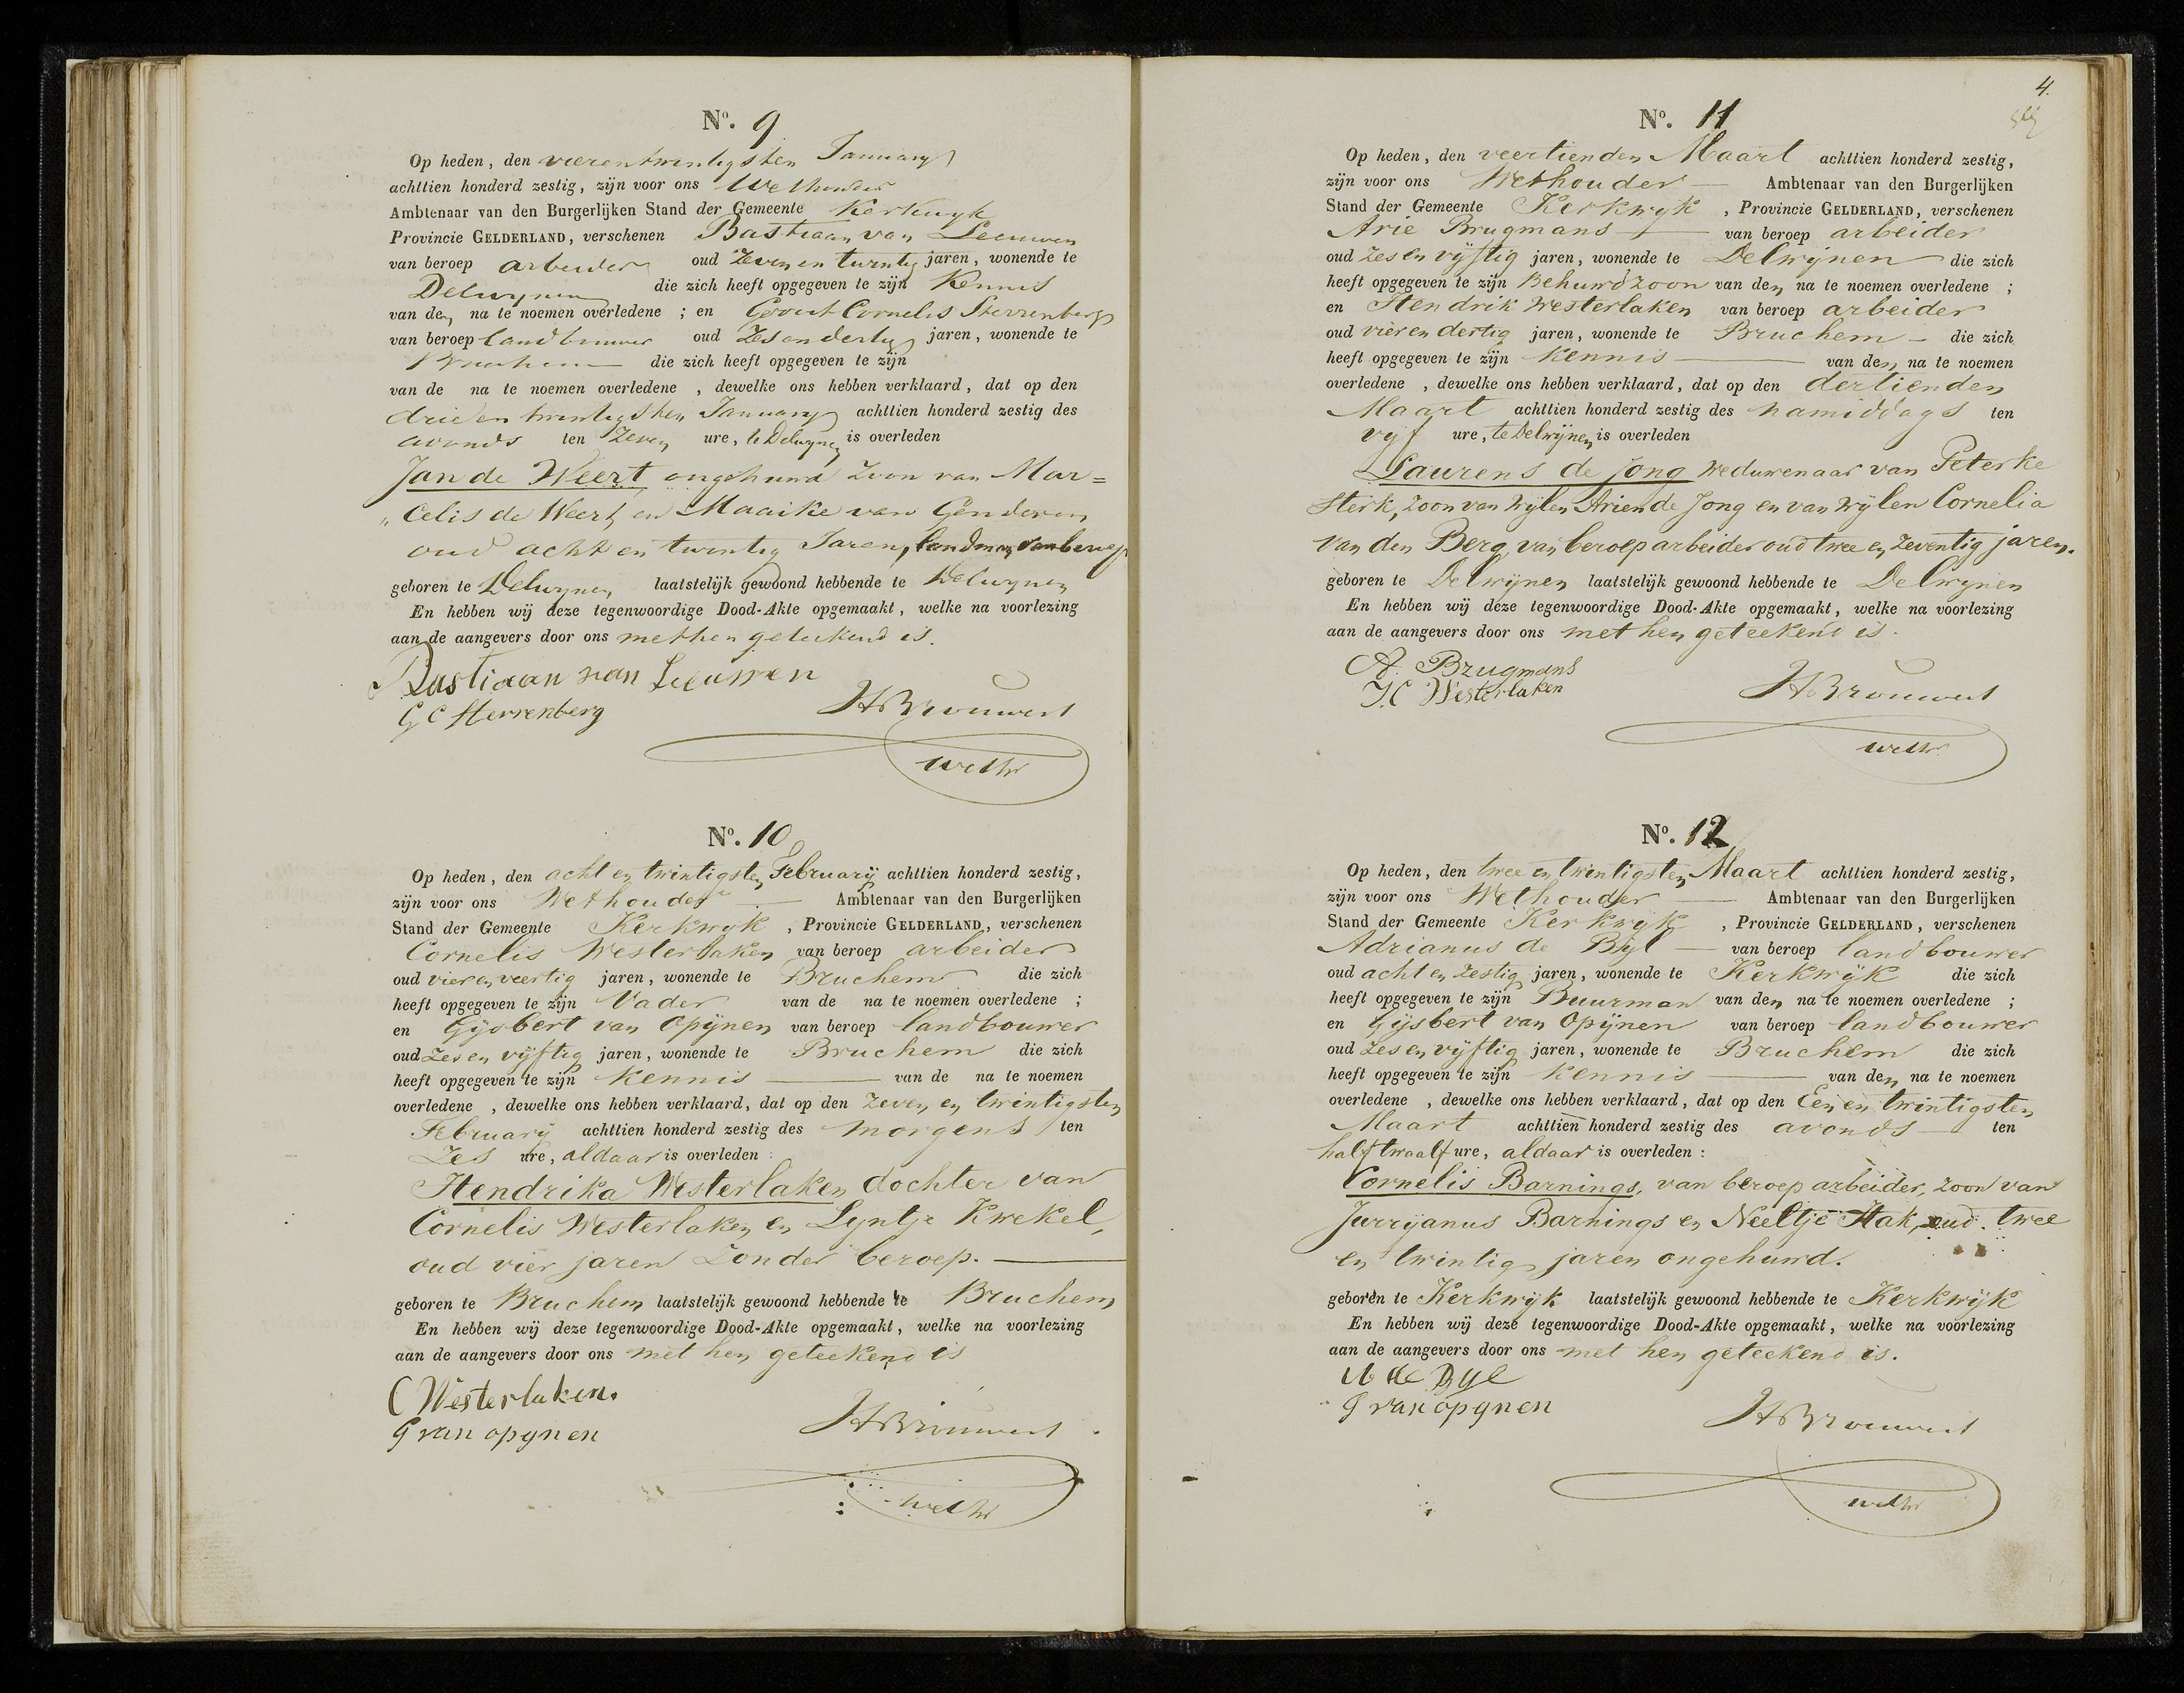 N°. 9
Op heden, den vierentwintigsten January
achttien honderd zestig, zijn voor ons Wethouder
Ambtenaar van den Burgerlijken Stand der Gemeente Kerkwyk
Provincie GELDERLAND, verschenen Bastiaan van Leeuwen
van beroep arbeider oud zeven en twintig jaren, wonende te
Delwynen die zich heeft opgegeven te zijn Kennis
van den na te noemen overledene ; en Govert Cornelis Sterrenberg
van beroep landbouwer oud Zes en dertig jaren, wonende te
Bruchem die zich heeft opgegeven te zijn
van de na te noemen overledene , dewelke ons hebben verklaard, dat op den
drie en twintigsten January achttien honderd zestig des
avonds ten Zeven ure, te Delwynen is overleden
Jan de Weert ongehuwd zoon van Mar=
„celis de Weert en Maaike van Genderen
oud acht en twintig Jaren, landman van beroep
geboren te Delwynen laatstelijk gewoond hebbende te Delwynen
En hebben wij deze tegenwoordige Dood-Akte opgemaakt, welke na voorlezing
aan de aangevers door ons met hen geteekend is.
Bastiaan van Leeuwen
G C Sterrenberg HBrouwers
wethr
N°. 10
Op heden, den acht en twintigsten February achttien honderd zestig,
zijn voor ons Wethouder Ambtenaar van den Burgerlijken
Stand der Gemeente Kerkwyk , Provincie GELDERLAND, verschenen
Cornelis Westerlaken van beroep arbeider
oud vier en veertig jaren, wonende te Bruchem die zich
heeft opgegeven te zijn Vader van de na te noemen overledene ;
en Gysbert van Opijnen van beroep landbouwer
oud zes en vijftig jaren, wonende te Bruchem die zich
heeft opgegeven te zijn Kennis van de na te noemen
overledene , dewelke ons hebben verklaard, dat op den zeven en twintigsten
February achttien honderd zestig des morgens ten
Zes ure, aldaar is overleden :
Hendrika Westerlaken dochter van
Cornelis Westerlaken en Lyntje Kwekel,
oud vier jaren Zonder beroep.
geboren te Bruchem laatstelijk gewoond hebbende te Bruchem
En hebben wij deze tegenwoordige Dood-Akte opgemaakt, welke na voorlezing
aan de aangevers door ons met hen geteekend is
C Westerlaken.
G van opynen HBrouwers
wethr
4.
N°. 11
Op heden, den veertienden Maart achttien honderd zestig,
zijn voor ons Wethouder Ambtenaar van den Burgerlijken
Stand der Gemeente Kerkwyk , Provincie GELDERLAND, verschenen
Arie Brugmans van beroep arbeider
oud zes en vijftig jaren, wonende te Delwijnen die zich
heeft opgegeven te zijn Behuwdzoon van den na te noemen overledene ;
en Hendrik Westerlaken van beroep arbeider
oud vier en dertig jaren, wonende te Bruchem die zich
heeft opgegeven te zijn kennis van den na te noemen
overledene , dewelke ons hebben verklaard, dat op den dertienden
Maart achttien honderd zestig des namiddags ten
vijf ure, te Delwijnen is overleden
Laurens de Jong Weduwenaar van Peterke
Sterk, zoon van wijlen Arien de Jong en van wijlen Cornelia
van den Berg, van beroep arbeider oud twee en zeventig jaren.
geboren te Delwijnen laatstelijk gewoond hebbende te Delwynen
En hebben wij deze tegenwoordige Dood-Akte opgemaakt, welke na voorlezing
aan de aangevers door ons met hen geteekend is.
A. Brugmans
Westerlaken HBrouwers
wethr
N°. 12
Op heden, den twee en twintigsten Maart achttien honderd zestig,
zijn voor ons Wethouder Ambtenaar van den Burgerlijken
Stand der Gemeente Kerkwijk , Provincie GELDERLAND, verschenen
Adrianus de Byl van beroep landbouwer
oud acht en zestig jaren, wonende te Kerkwijk die zich
heeft opgegeven te zijn Buurman van den na te noemen overledene ;
en Gijsbert van Opijnen van beroep landbouwer
oud zes en vijftig jaren, wonende te Bruchem die zich
heeft opgegeven te zijn kennis van den na te noemen
overledene , dewelke ons hebben verklaard, dat op den Een en twintigsten
Maart achttien honderd zestig des avonds ten
half twaalf ure, aldaar is overleden :
Cornelis Barnings, van beroep arbeider, zoon van
Jurryanus Barnings en Neeltje Hak, oud twee
en twintig jaren ongehuwd.
geboren te Kerkwijk laatstelijk gewoond hebbende te Kerkwijk
En hebben wij deze tegenwoordige Dood-Akte opgemaakt, welke na voorlezing
aan de aangevers door ons met hen geteekend is.
A de Byl
G van opynen HBrouwers
wethr